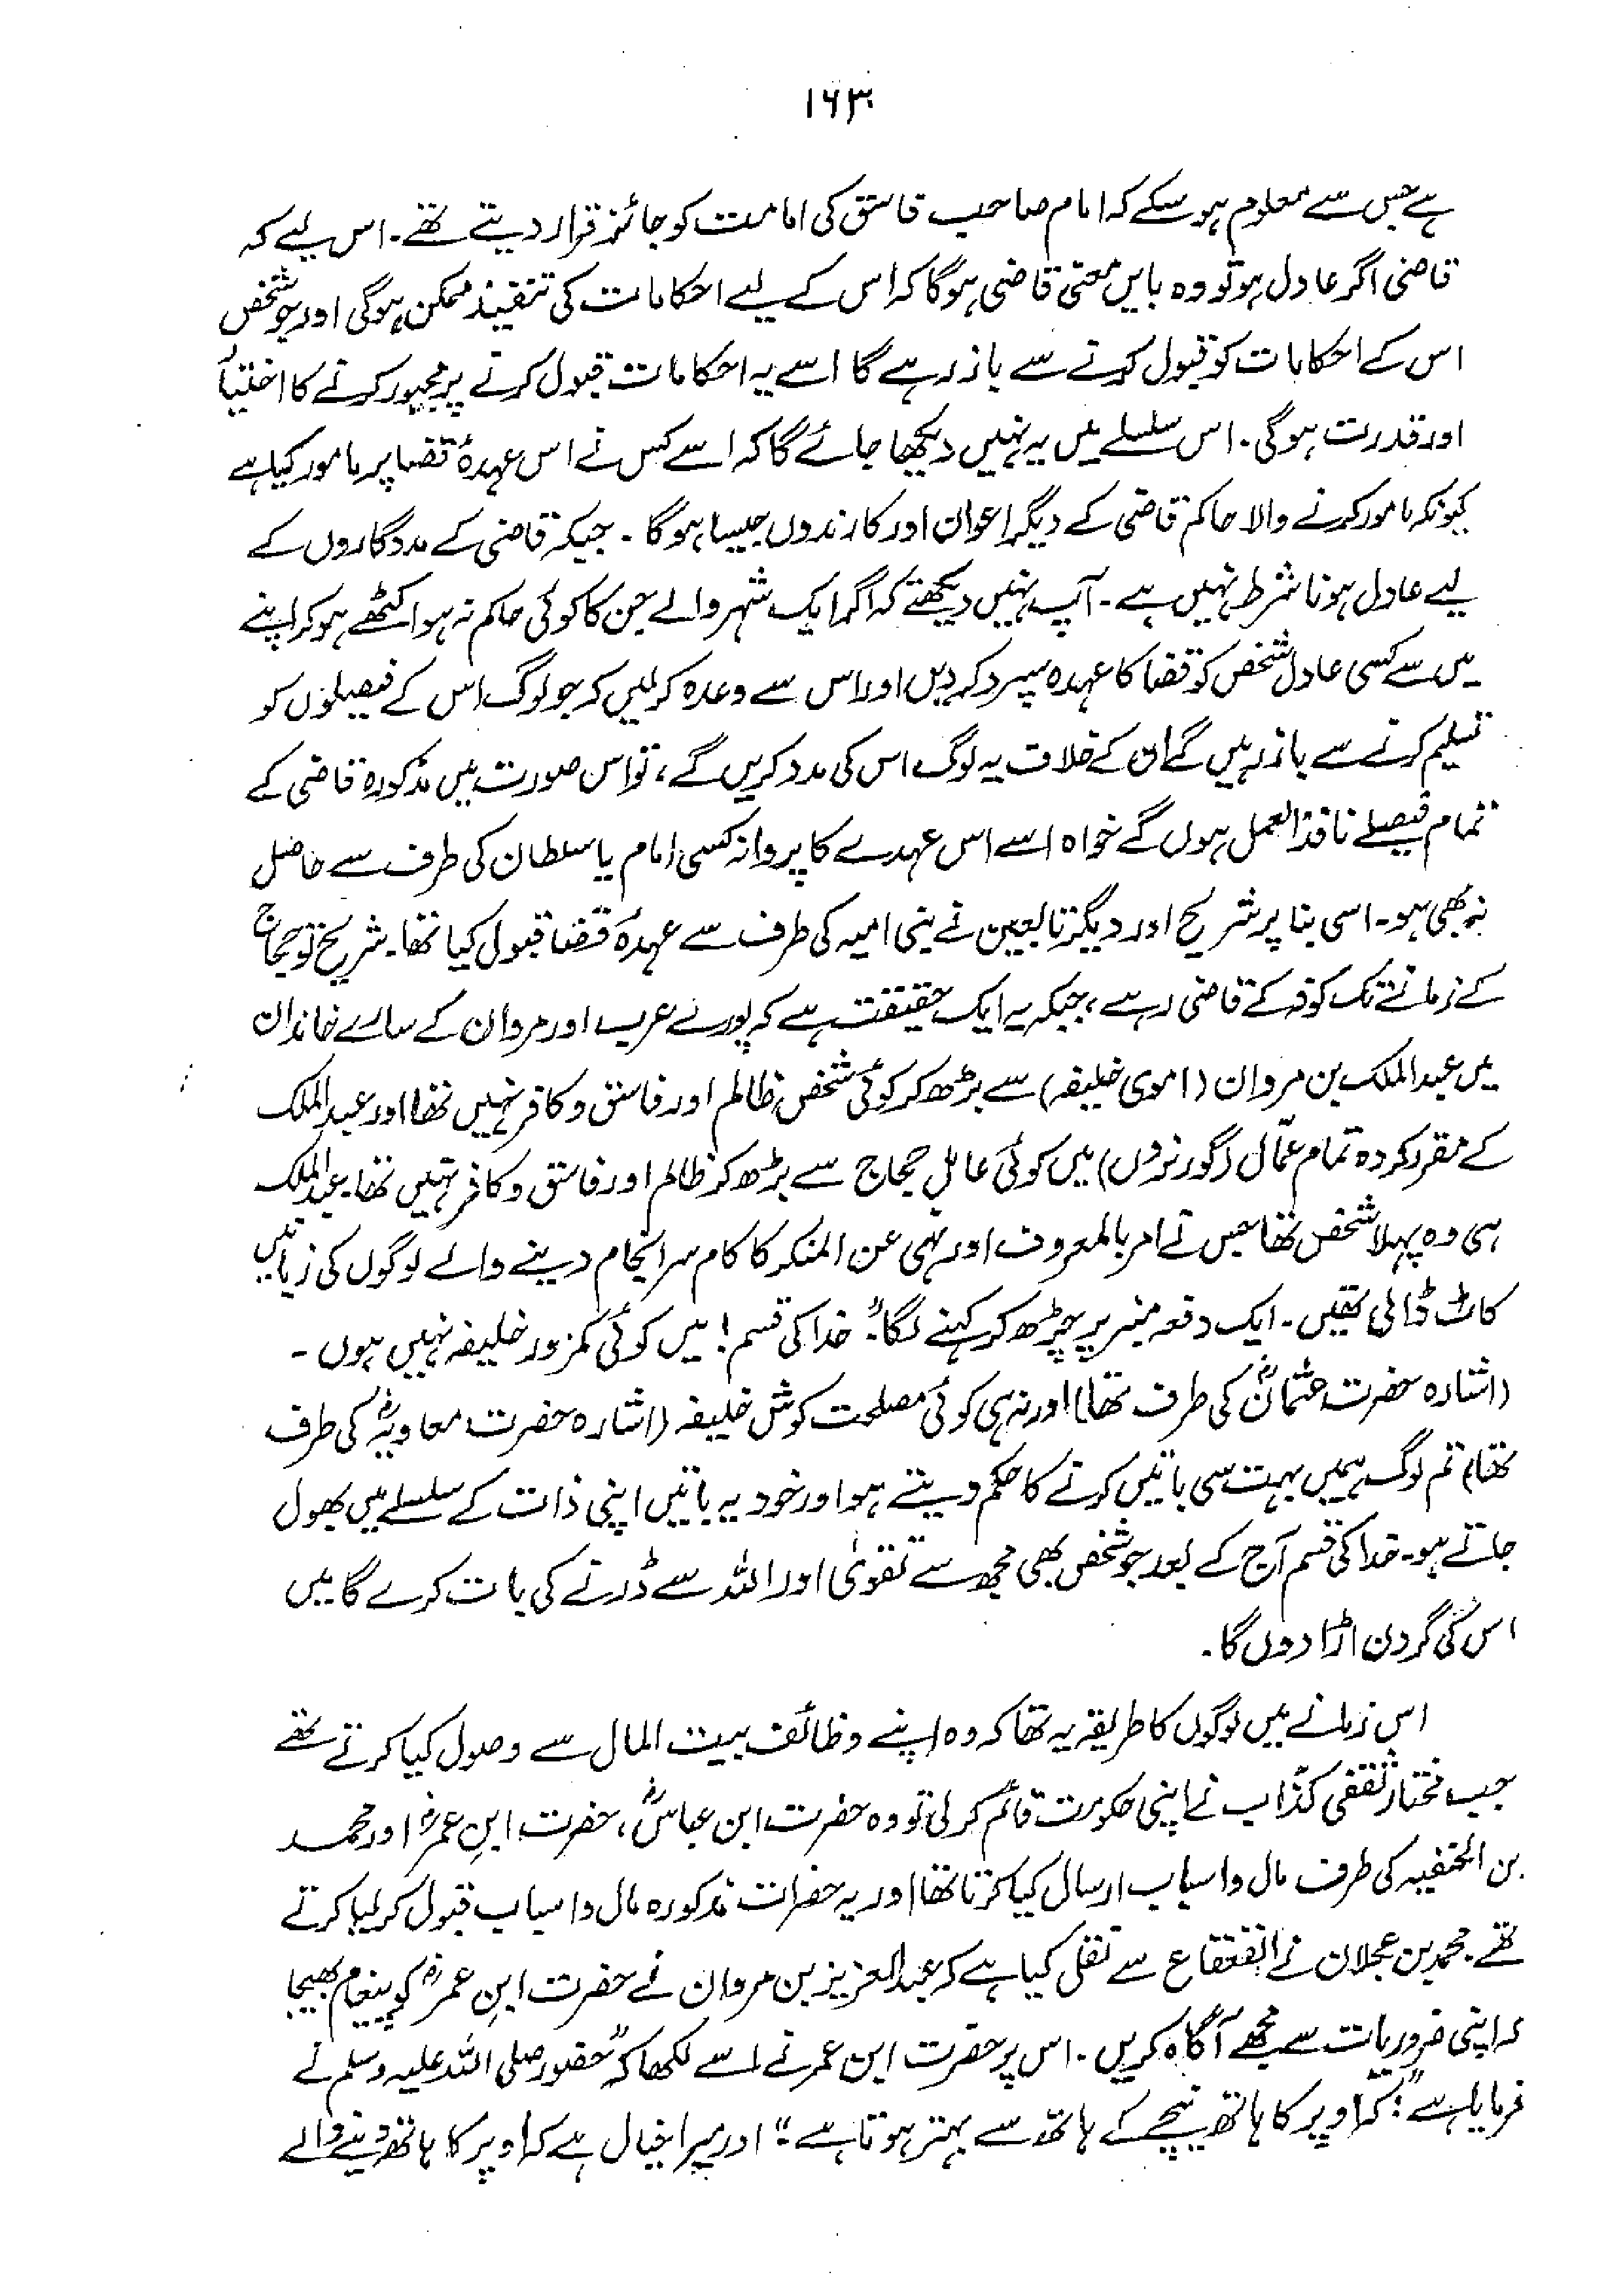 ۱۶۳
ہے جس سے معلوم ہو سکے کہ امام صاحب فاسق کی امامت کو جائز قرار دیتے تھے۔ اس لیے کہ
قاضی اگر عادل ہو تو وہ بایں معنی قاضی ہوگا کہ اس کے لیے احکامات کی تنفیذ ممکن ہوگی اور جو شخص
اس کے احکامات کو قبول کرنے سے باز رہے گا اسے یہ احکامات قبول کرنے پر مجبور کرنے کا اختیار
اور قدرت ہوگی۔ اس سلسلے میں یہ نہیں دیکھا جائے گا کہ اسے کس نے اس عہدۂ قضا پر مامور کیا ہے
کیونکہ مامور کرنے والا حاکم قاضی کے دیگر اعوان اور کارندوں جیسا ہوگا۔ جبکہ قاضی کے مددگاروں کے
لیے عادل ہونا شرط نہیں ہے۔ آپ نہیں دیکھتے کہ اگر ایک شہر والے جن کا کوئی حاکم نہ ہو اکٹھے ہو کر اپنے
میں سے کسی عادل شخص کو قضا کا عہدہ سپرد کر دیں اور اس سے وعدہ کر لیں کہ جو لوگ اس کے فیصلوں کو
تسلیم کرنے سے باز رہیں گے ان کے خلاف یہ لوگ اس کی مدد کریں گے، تو اس صورت میں مذکورہ قاضی کے
تمام فیصلے نافذ العمل ہوں گے خواہ اسے اس عہدے کا پروانہ کسی امام یا سلطان کی طرف سے حاصل
نہ بھی ہو۔ اسی بنا پر شریح اور دیگر تابعین نے بنی امیہ کی طرف سے عہدۂ قضا قبول کیا تھا۔ شریح تو حجاج
کے زمانے تک کوفہ کے قاضی رہے، جبکہ یہ ایک حقیقت ہے کہ پورے عرب اور مروان کے سارے خاندان
میں عبد الملک بن مروان (اموی خلیفہ) سے بڑھ کر کوئی شخص ظالم اور فاسق و کافر نہیں تھا اور عبد الملک
کے مقرر کردہ تمام عمّال (گورنروں) میں کوئی عامل حجاج سے بڑھ کر ظالم اور فاسق و کافر نہیں تھا۔ عبد الملک
ہی وہ پہلا شخص تھا جس نے امر بالمعروف اور نہی عن المنکر کا کام سرانجام دینے والے لوگوں کی زبانیں
کاٹ ڈالی تھیں۔ ایک دفعہ منبر پر چڑھ کر کہنے لگا "خدا کی قسم! میں کوئی کمزور خلیفہ نہیں ہوں۔
(اشارہ حضرت عثمانؓ کی طرف تھا) اور نہ ہی کوئی مصلحت کوش خلیفہ (اشارہ حضرت معاویہؓ کی طرف
تھا) تم لوگ ہمیں بہت سی باتیں کرنے کا حکم دیتے ہو اور خود یہ باتیں اپنی ذات کے سلسلے میں بھول
جاتے ہو۔ خدا کی قسم آج کے بعد جو شخص بھی مجھ سے تقویٰ اور اللہ سے ڈرنے کی بات کرے گا میں
اس کی گردن اڑا دوں گا۔
اس زمانے میں لوگوں کا طریقہ یہ تھا کہ وہ اپنے وظائف بیت المال سے وصول کیا کرتے تھے
جب مختار ثقفی کذّاب نے اپنی حکومت قائم کر لی تو وہ حضرت ابن عباسؓ، حضرت ابنِ عمرؓ اور محمد
بن الحنفیہ کی طرف مال و اسباب ارسال کیا کرتا تھا اور یہ حضرات مذکورہ مال و اسباب قبول کر لیا کرتے
تھے۔ محمد بن عجلان نے القعقاع سے نقل کیا ہے کہ عبد العزیز بن مروان نے حضرت ابنِ عمرؓ کو پیغام بھیجا
کہ اپنی ضروریات سے مجھے آگاہ کریں۔ اس پر حضرت ابن عمر نے اسے لکھا کہ "حضور صلی اللہ علیہ وسلم نے
فرمایا ہے": کہ اوپر کا ہاتھ نیچے کے ہاتھ سے بہتر ہوتا ہے۔" اور میرا خیال ہے کہ اوپر کا ہاتھ دینے والے